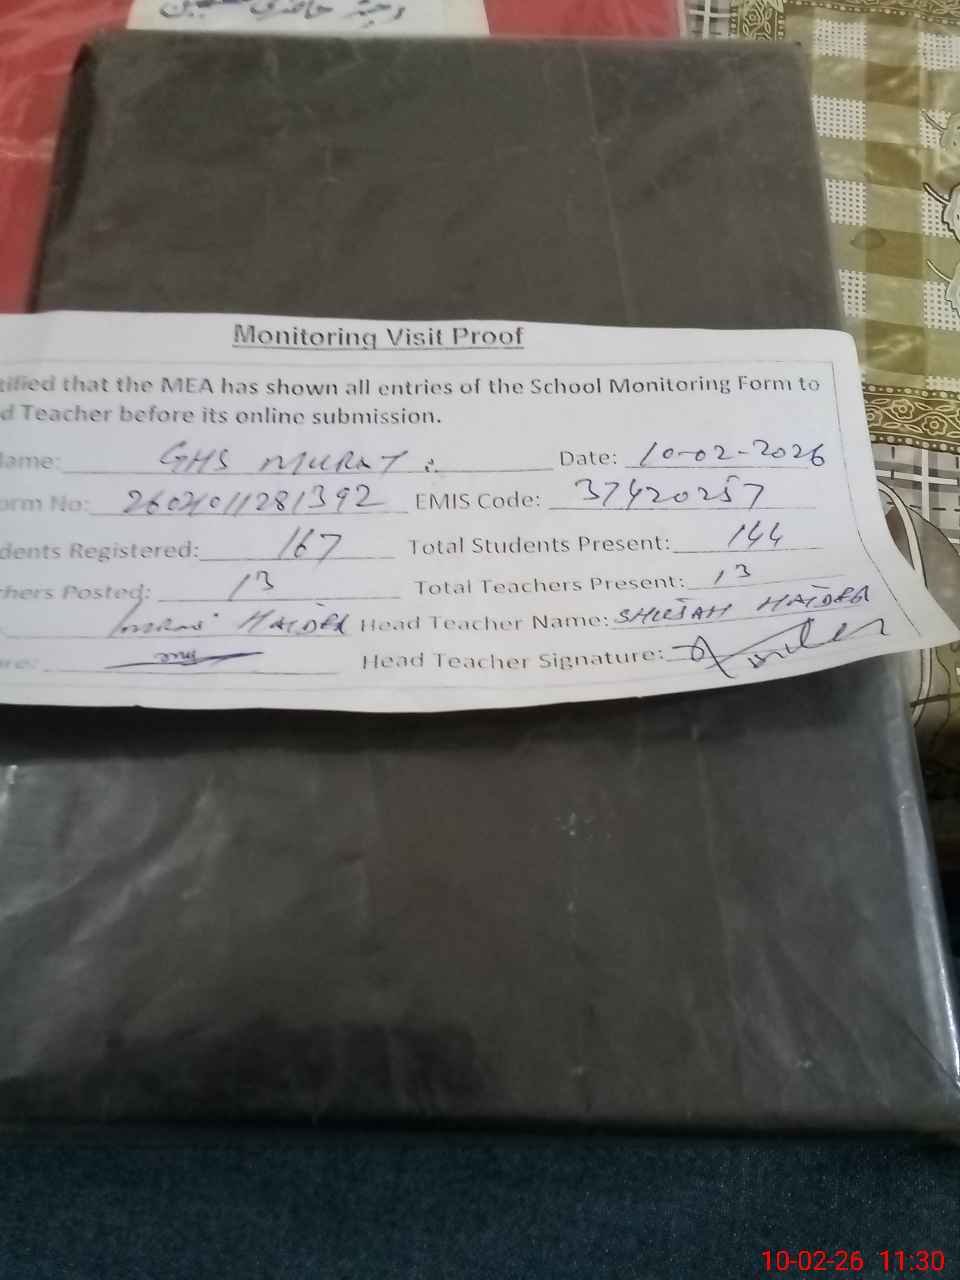 Monitoring Visit Proof
tified that the MEA has shown all entries of the School Monitoring Form to
d Teacher before its online submission.
Name: GHS MURAT Date: 10-02-2026
orm No: EMIS Code: 37420257
dents Registered: 167 Total Students Present: 144
chers Posted: 13 Total Teachers Present: 13
HAIDER Head Teacher Name: SHUJAH HAIDER
re: Head Teacher Signature:
10-02-26 11:30